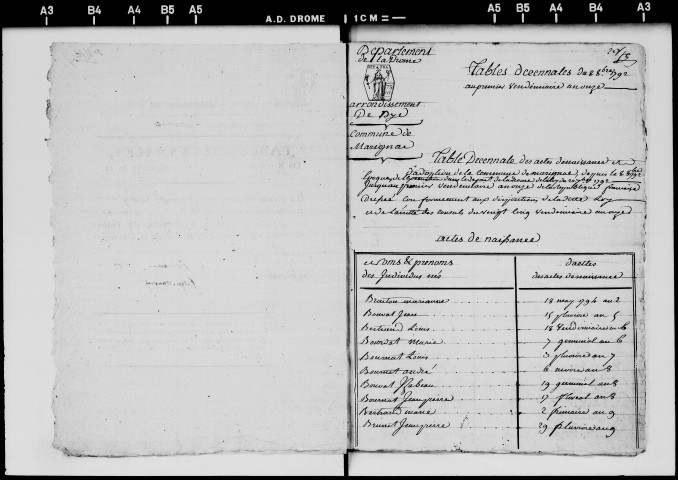 A3 B4 A4 B5 A5 A.D. DROME 1 CM = A5 B5 A4 B4 A3
Departement
de la Drome
Tables decennales du 8 8bre 1792
au premier Vendemiaire an onze
arrondissement
De Dye
Commune de
Marignac
Table Decennale des actes de naissance et
d'adoption de la commune de marignac, depuis le 8 8bre 1792
jusqu'au premier Vendemiaire an onze de la Republique française
Dressé conformement aux dispositions de la dite Loy
et de l'arreté des consuls du vingt cinq Vendemiaire an onze
actes de naissance
Noms & prenoms
des Individus nés
dattes
des actes de naissance
Breiton marianne 18 may 1794 an 2
Bouvat Jean 15 pluviose an 5
Bertrand Louis 18 Vendemiaire an 6
Bournat Marie 7 germinal an 6
Bournat Louis 3 pluviose an 7
Bournat andré 6 nivose an 8
Bouvat Isabeau 19 germinal an 8
Bournat Jean pierre 17 floreal an 8
Bertrand marie 2 frimaire an 9
Brunet Jean pierre 29 pluviose an 9